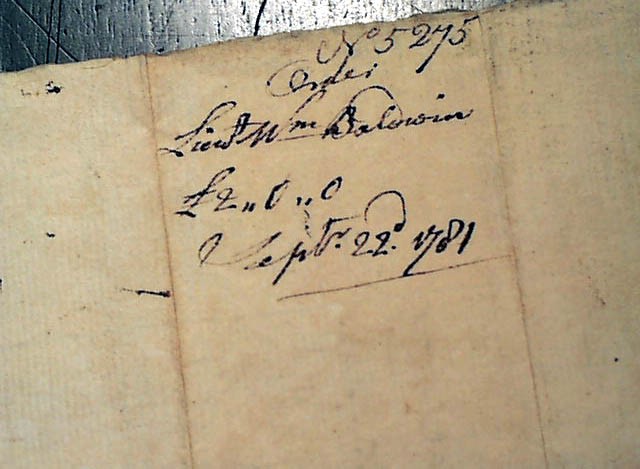 No 5275
Order
Lieut Wm Baldwin
£2,,0,,0
Septbr. 22d. 1781